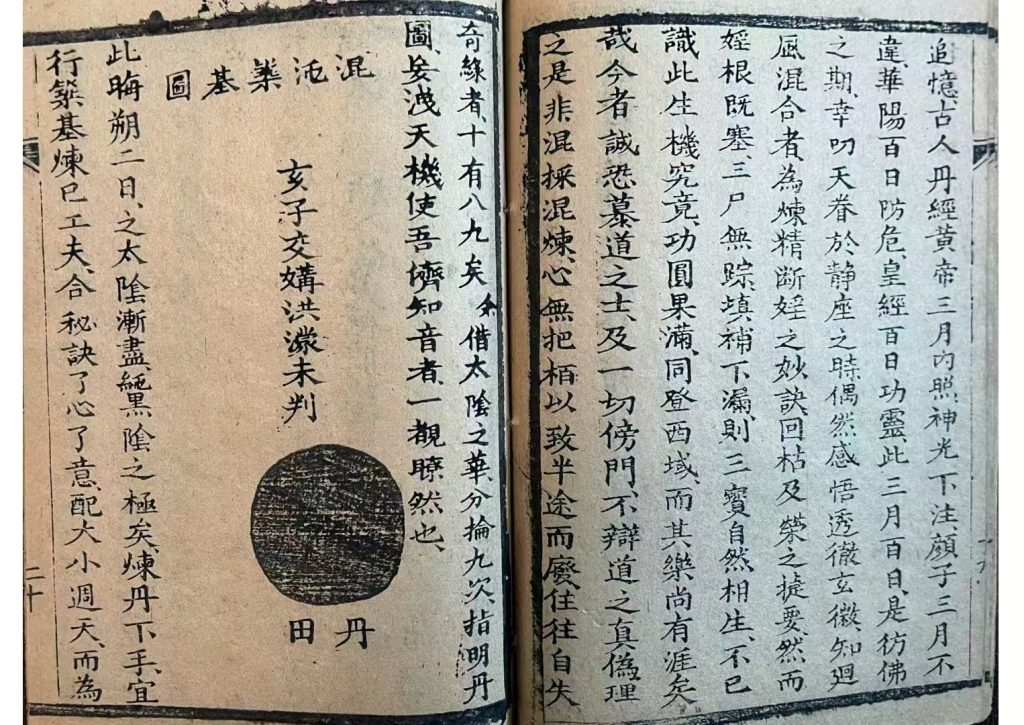 追憶、古人丹經黃帝三月內照、神光下注、顏子三月不
違、華陽百日防危、皇經百日功靈、此三月百日、是彷彿
之期、幸叨天眷於靜座之時、偶然感悟透徹玄微、知廻
風混合者、為煉精斷婬之妙訣、回枯及榮之捷要、然而
婬根既塞、三尸無踪、填補下漏、則三寶自然相生、不已
識此生機究竟、功圓果滿、同登西域、而其樂尚有涯矣
哉、今者誠恐慕道之士、及一切傍門、不辯道之真偽理
之是非、混採混煉、心無把柄以致半途而廢、往往自失
奇緣者、十有八九矣、余借太陰之華、分掄九次、指明丹
圖、妄洩天機使吾儕知音者、一觀瞭然也、
混沌築基圖
亥子交媾洪濛未判
丹田
此晦朔二日、之太陰漸盡、純黑陰之極矣、煉丹下手、宜
行築基煉已工夫、合秘訣了心了意、配大小週天、而為
二十